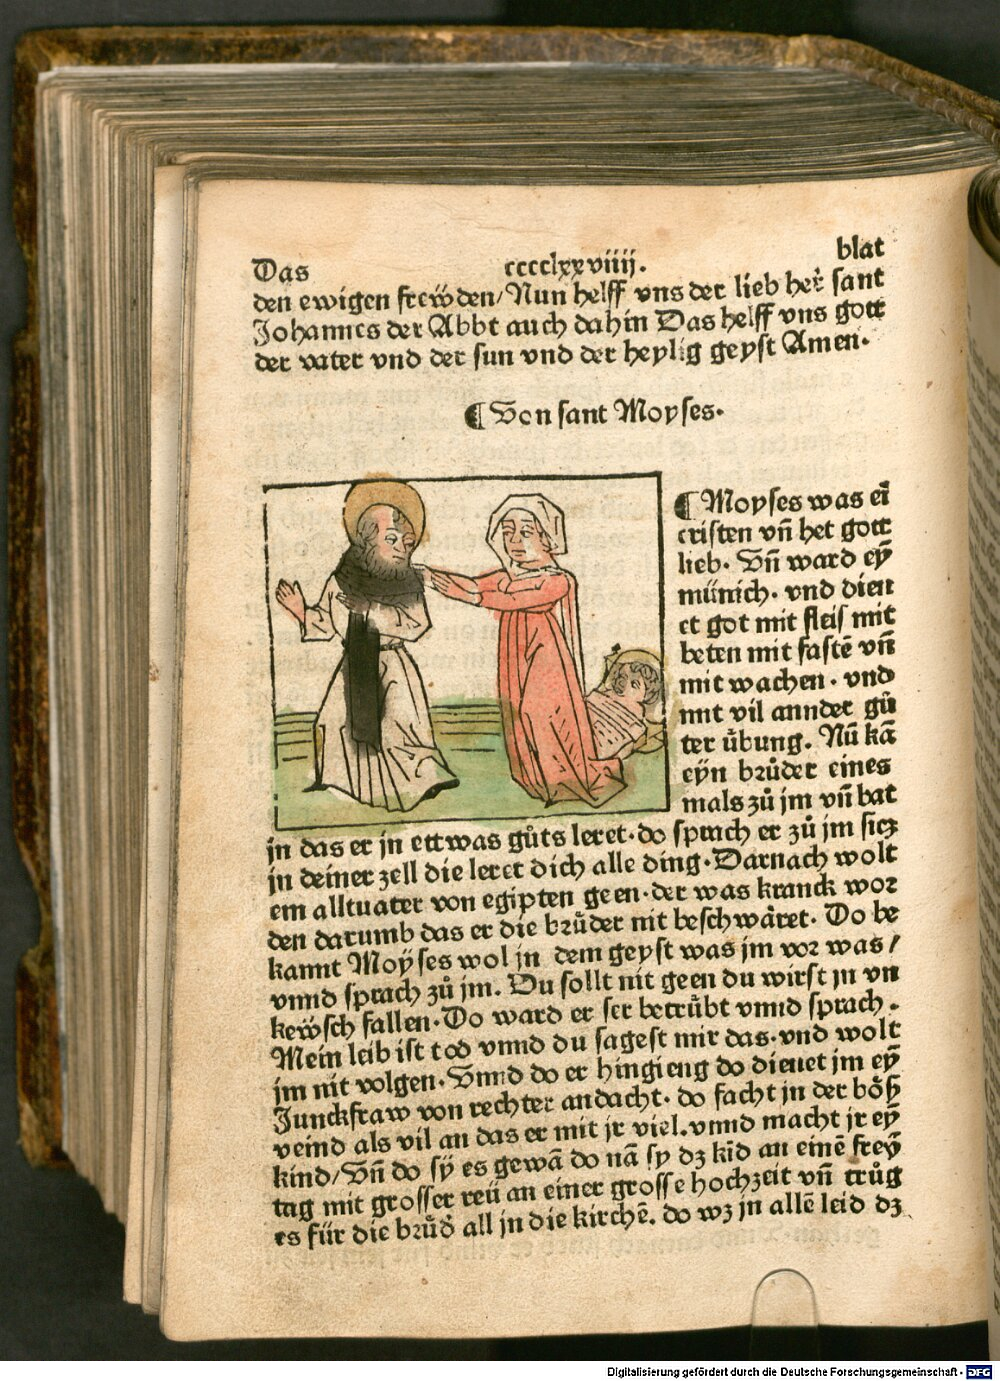 Das cccclxxviiij. blat
den ewigen frewͤden/Nun helff vns der lieb her̕ sant
Johannes der Abbt auch dahin Das helff vns gott
der vater vnd der sun vnd der heylig geyst Amen.
¶ Von sant Moyses.
¶ Moyses was ei̅
cristen vn̅ het gott
lieb. Vn̅ ward ey̅
münich. vnd dien
et got mit fleis mit
beten mit faste̅ vn̅
mit wachen. vnd
mit vil annder gů
ter ůbung. Nu̅ ka̅
eyn brůder eines
mals zů jm vn̅ bat
jn das er jn ettwas gůts leret. do sprach er zů jm sicz
jn deiner zell die leret dich alle ding. Darnach wolt
ein alltuater von egipten geen. der was kranck wor
den darumb das er die brůder nit beschwäret. Do be
kannt Moÿses wol jn dem geyst was jm vor was/
vnnd sprach zů jm. Du sollt nit geen du wirst jn vn
kewͤsch fallen. Do ward er ser betrůbt vnnd sprach.
Mein leib ist tod vnnd du sagest mir das. vnd wolt
jm nit volgen. Vnnd do er hingieng do dienet jm ey̅
Junckfraw von rechter andacht. do facht jn der bôß
veind als vil an das er mit jr viel. vnnd macht jr ey̅
kind/Vn̅ do sÿ es gewa̅ do na̅ sy dz ki̅d an eine̅ frey̅
tag mit grosser reü an einer grosse hochzeit vn̅ trůg
es für die brůd̕ all jn die kirche̅. do wz jn alle̅ leid dz
Digitalisierung gefördert durch die Deutsche Forschungsgemeinschaft - DFG